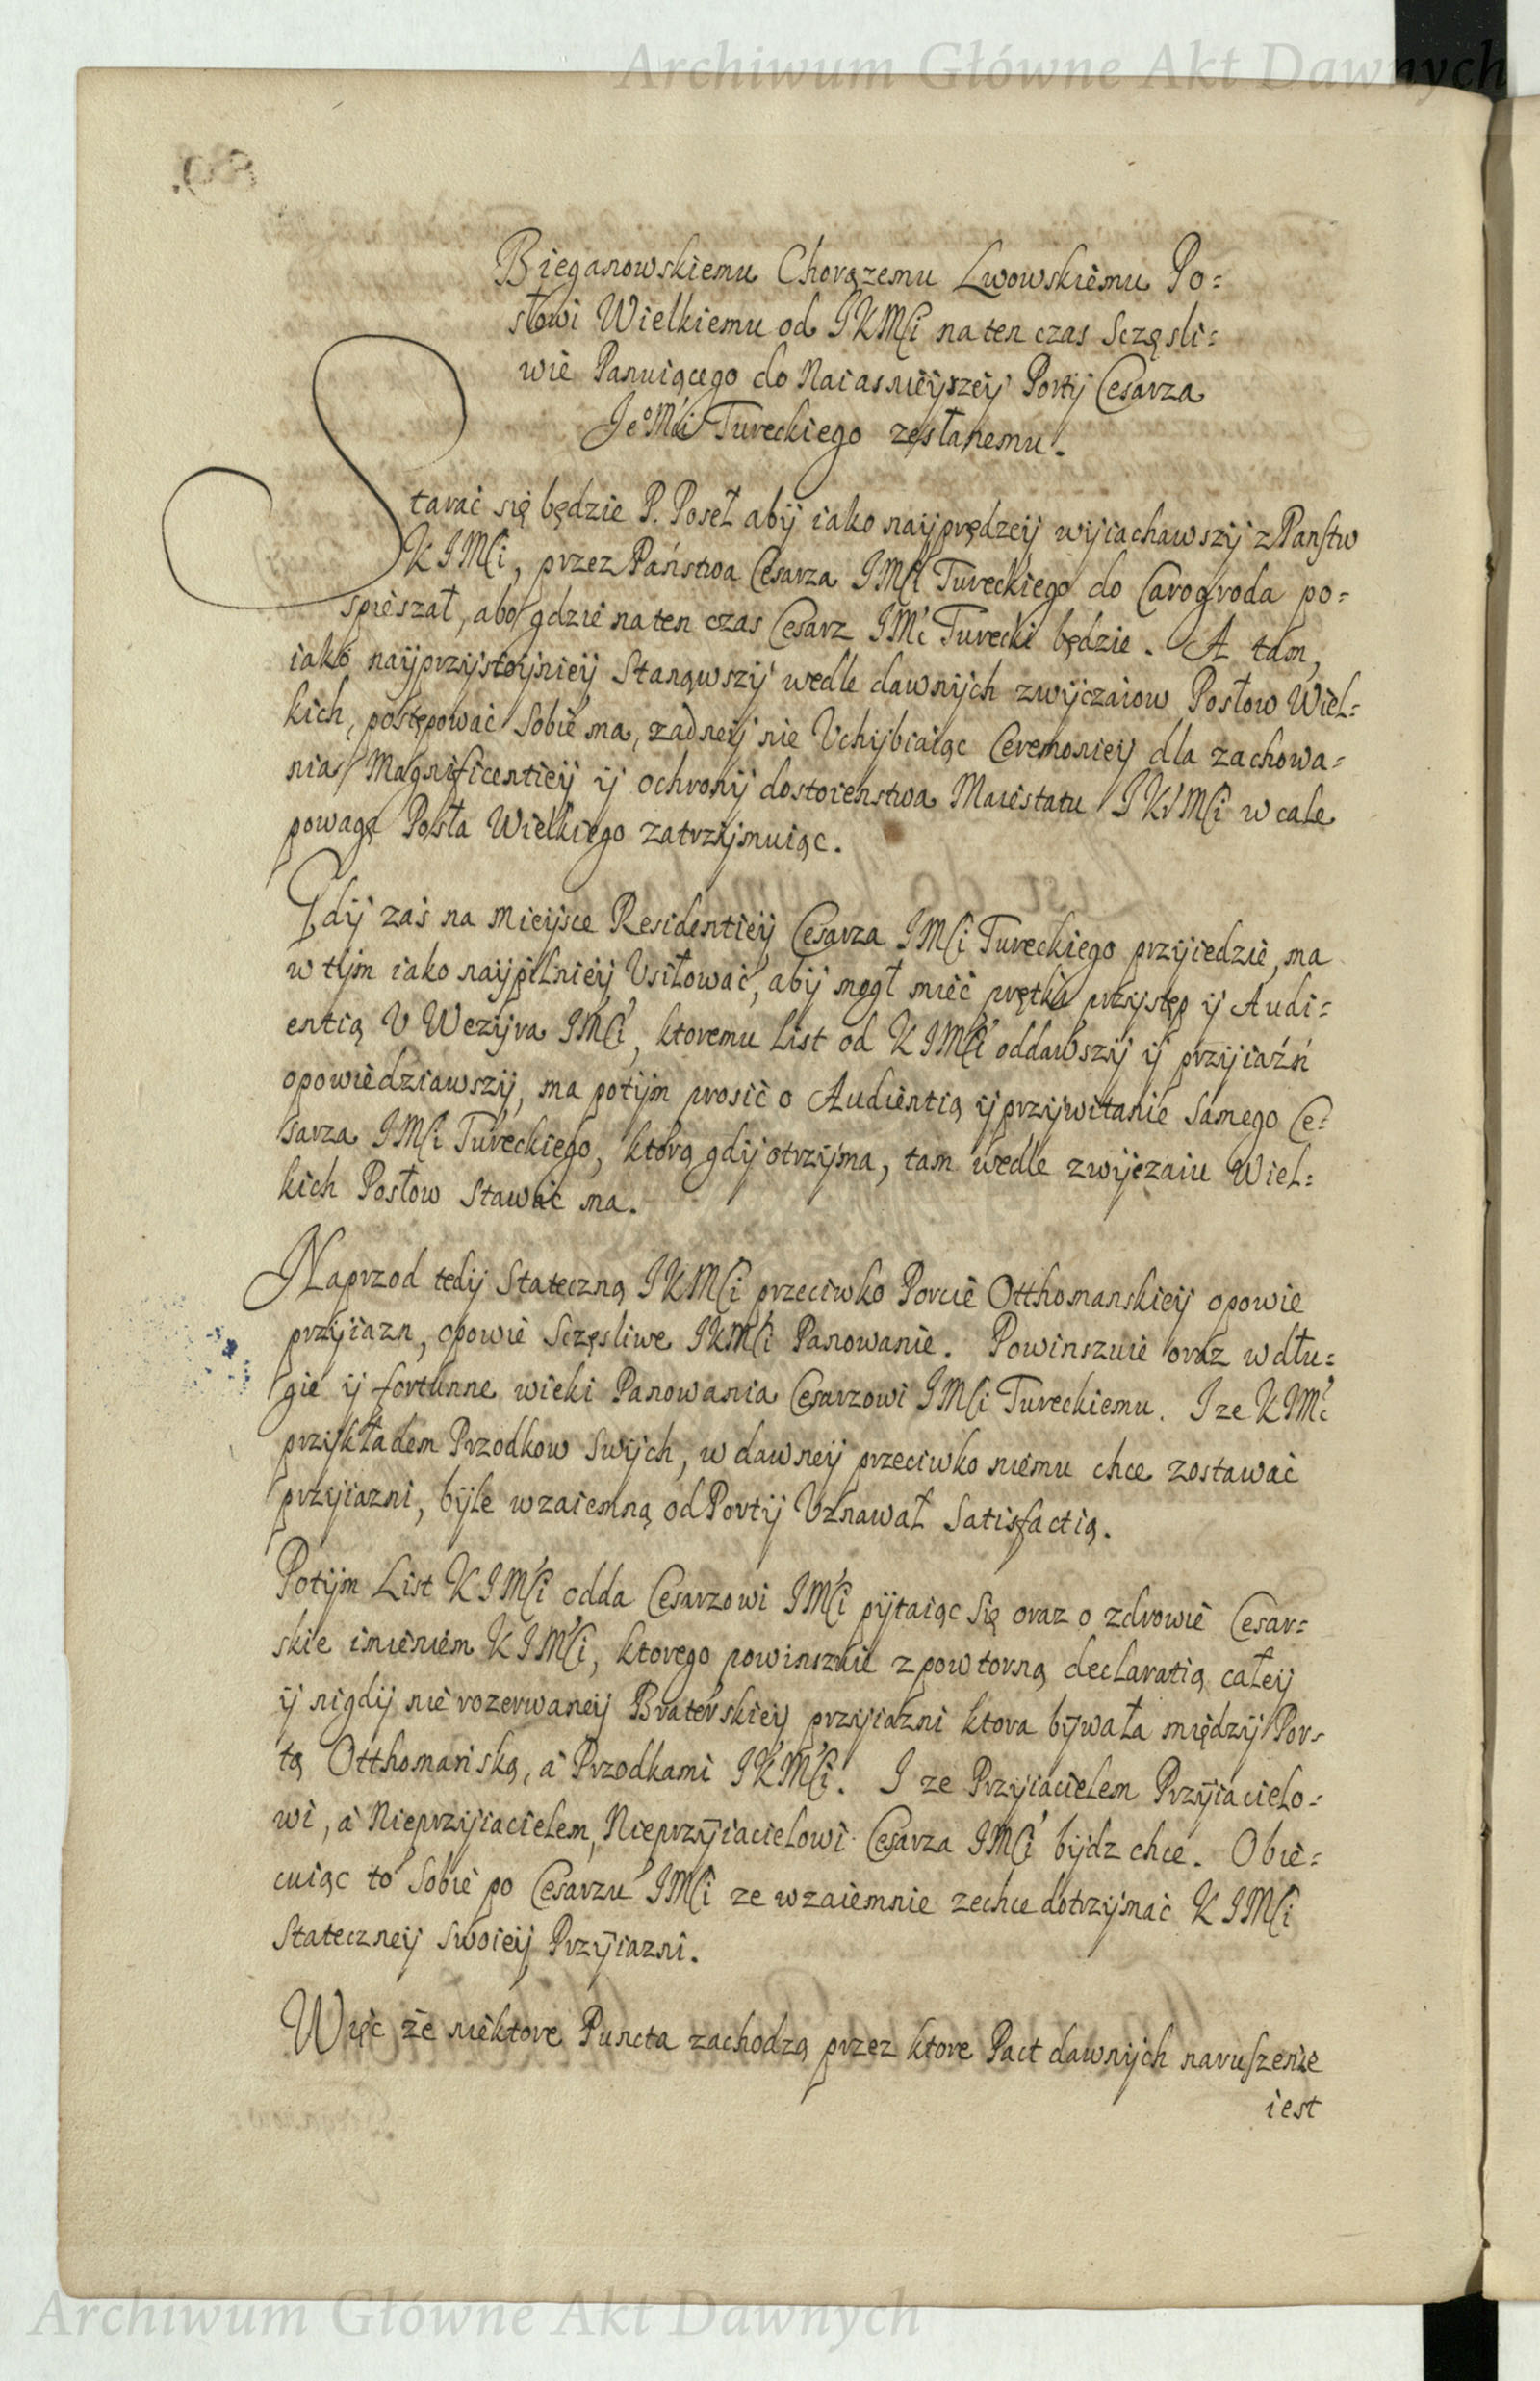 Archiwum Główne Akt Dawnych
Bieganowskiemu Chorązemu Lwowskiemu Po=
słowi Wielkiemu od JKMści na ten czas Sczęsli=
wie Panuiącego do Naiasnieyszey Porty Cesarza
Je⁰Mści Tureckiego zesłanemu.
Starać się będzie P. Poseł aby iako nayprędzey wyiachawszy z Panstw
KJMści, przez Państwa Cesarza JMści Tureckiego do Carogroda po=
spieszał, abo gdzie na ten czas Cesarz JMć Turecki będzie. A tam,
iako nayprzystoyniey Stanąwszy wedle dawnych zwyczaiow Posłow Wiel=
kich, postępować Sobie ma, zadney nie Uchybiaiąc Ceremoniey dla zachowa=
nia Magnificentiey y ochrony dostoienstwa Maiestatu JKrMści w cale
powagę Posła Wielkiego zatrzymuiąc.
Gdy zaś na mieysce Residentiey Cesarza JMści Tureckiego przyiedzie, ma
w tym iako naypilniey Usiłować, aby mogł mieć prętki przystęp y Audi=
entią U Wezyra JMści, ktoremu List od KJMści oddawszy y przyiaźń
opowiedziawszy, ma potym prosić o Audientią y przywitanie Samego Ce=
sarza JMści Tureckiego, ktorą gdy otrzyma, tam wedle zwyczaiu Wiel=
kich Posłow Stawać ma.
Naprzod tedy Stateczną JKMści przeciwko Porcie Otthomanskiey opowie
przyiazn, opowie Sczęsliwe JKMści Panowanie. Powinszuie oraz w dłu=
gie y fortunne wieki Panowania Cesarzowi JMści Tureckiemu. I ze KJMć
przykładem Przodkow Swych, w dawney przeciwko niemu chce zostawać
przyiazni, byle wzaiemną od Porty Uznawał Satisfactią.
Potym List KJMści odda Cesarzowi JMści pytaiąc Się oraz o zdrowie Cesar=
skie imieniem KJMści, ktorego powinszuie z powtorną declaratią całey
y nigdy nie rozerwaney Braterskiey przyiazni ktora bywała między Por=
tą Otthomańską, a Przodkami JKMści. I ze Przyiacielem Przyiacielo=
wi, a Nieprzyiacielem, Nieprzyiacielowi Cesarza JMści bydz chce. Obie=
cuiąc to Sobie po Cesarzu JMści ze wzaiemnie zechce dotrzymać KJMści
Stateczney Swoiey Przyiazni.
Więc że niektore Puncta zachodzą przez ktore Pact dawnych naruszenie
iest
Archiwum Główne Akt Dawnych